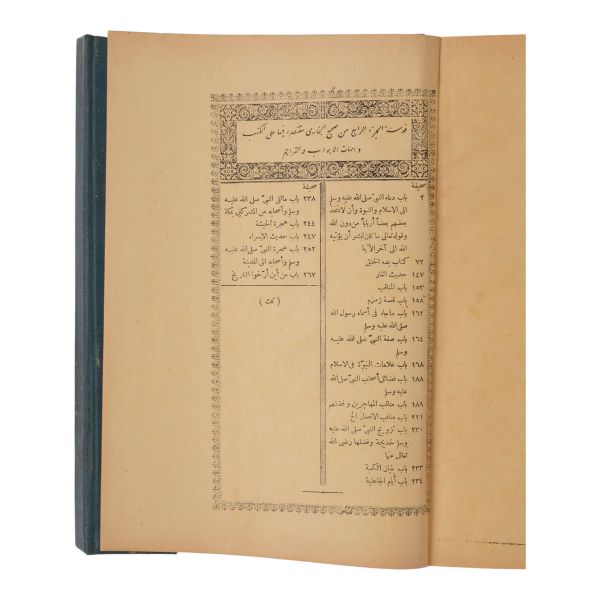 فهرسة الجزء الرابع من صحيح البخارى مقتصرا فيها على الكتب
وامهات الابواب والتراجم
صحيفة
٢ باب دعاء النبى صلى الله عليه وسلم
الى الاسلام والنبوة وأن لا يتخذ
بعضهم بعضا أربابا من دون الله
وقوله تعالى ما كان لبشر أن يؤتيه
الله الى آخر الآية
٧٢ كتاب بدء الخلق
١٤٧ حديث الغار
١٥٣ باب المناقب
١٥٨ باب قصة زمزم
١٦٢ باب ماجاء فى أسماء رسول الله
صلى الله عليه وسلم
١٦٤ باب صفة النبىّ صلى الله عليه
وسلم
١٦٨ باب علامات النبوّة فى الاسلام
١٨٨ باب فضائل أصحاب النبىّ صلى الله
عليه وسلم
١٨٩ باب مناقب المهاجرين وفضلهم
٢٢١ باب مناقب الانصار الخ
٢٣٠ باب تزويج النبىّ صلى الله عليه
وسلم خديجة وفضلها رضى الله
تعالى عنها
٢٣٣ باب بنيان الكعبة
٢٣٤ باب أيام الجاهلية
صحيفة
٢٣٨ باب مالقى النبىّ صلى الله عليه
وسلم وأصحابه من المشركين بمكة
٢٤٤ باب هجرة الحبشة
٢٤٧ باب حديث الاسراء
٢٥٢ باب هجرة النبىّ صلى الله عليه
وسلم وأصحابه الى المدينة
٢٦٧ باب من أين أرّخوا التاريخ
(تمت)